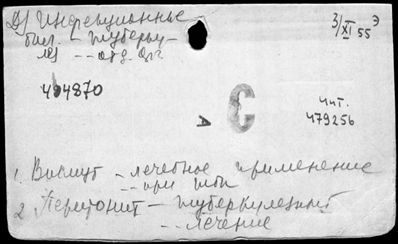 Д) Инфекционные
бол. - туберку-
лез -- отд. орг.
3/XI 55 Э
494870
С
А
Чит.
479256
1. Висмут - лечебное применение
-- при
2. Перитонит - туберкулезный
-- лечение